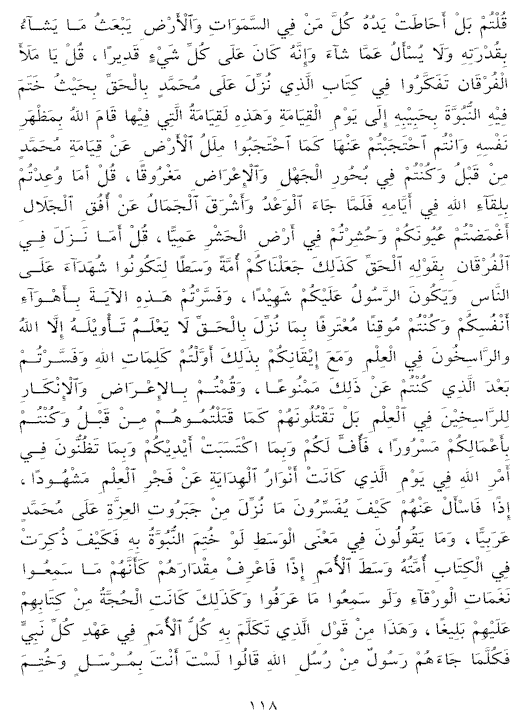 قُلْتُمْ بَلْ أَحَاطَتْ يَدُهُ كُلَّ مَنْ فِي السَّمَوَاتِ وَٱلْأَرْضِ يَبْعَثُ مَا يَشَآءُ
بِقُدْرَتِهِ وَلَا يُسْأَلُ عَمَّا شآءَ وَإِنَّهُ كَانَ عَلَى كُلِّ شَيْءٍ قَدِيرًا ، قُلْ يَا مَلَأَ
الْفُرْقَانِ تَفَكَّرُوا فِي كِتَابِ الَّذِي نُزِّلَ عَلَى مُحَمَّدٍ بِالْحَقِّ بِحَيْثُ خَتَمَ
فِيهِ النُّبُوَّةَ بِحَبِيبِهِ إِلَى يَوْمِ الْقِيَامَةِ وَهَذِهِ لَقِيَامَةُ الَّتِي فِيهَا قَامَ اللهُ بِمَظْهَرِ
نَفْسِهِ وَانْتُم ٱحْتَجَبْتُمْ عَنْهَا كَمَا ٱحْتَجَبُوا مِلَلُ ٱلْأَرْضِ عَنْ قِيَامَةِ مُحَمَّدٍ
مِنْ قَبْلُ وَكُنْتُمْ فِي بُحُورِ الْجَهْلِ وَٱلْإِعْرَاضِ مَغْرُوقًا ، قُلْ أمَا وُعِدْتُمْ
بِلِقَآءِ اللهِ فِي أَيَّامِهِ فَلَمَّا جَاءَ ٱلْوَعْدُ وَأَشْرَقَ ٱلْجَمَالُ عَنْ أُفُقِ ٱلْجَلَالِ
أَغْمَضْتُمْ عُيُونَكُمْ وَحُشِرْتُمْ فِي أَرْضِ الْحَشْرِ عَمِيًّا ، قُلْ أَمَا نَزَلَ فِي
ٱلْفُرْقَانِ بِقَوْلِهِ الْحَقِّ كَذَلِكَ جَعَلْنَاكُمْ أُمَّةً وَسَطًا لِتَكُونُوا شُهَدَآءَ عَلَى
النَّاسِ وَيَكُونَ الرَّسُولُ عَلَيْكُمْ شَهِيدًا ، وَفَسَّرْتُمْ هَذِهِ الآيَةَ بِأَهْوَآءِ
أَنْفُسِكُمْ وَكُنْتُمْ مُوقِنًا مُعْتَرِفًا بِمَا نُزِّلَ بِالْحَقِّ لَا يَعْلَمُ تَأْوِيلَهُ إِلَّا اللهُ
والرَّاسِخُونَ فِي الْعِلْمِ وَمَعَ إِيْقَانِكُمْ بِذَلِكَ أَوَّلْتُمْ كَلِمَاتِ اللهِ وَفَسَّرْتُمْ
بَعْدَ الَّذِي كُنْتُمْ عَنْ ذَلِكَ مَمْنُوعًا ، وَقُمْتُمْ بِالإِعْرَاضِ وَٱلْإِنْكَارِ
لِلرَّاسِخِينَ فِي ٱلْعِلْمِ بَلْ تَقْتُلُونَهُمْ كَمَا قَتَلْتُمُوهُمْ مِنْ قَبْلُ وَكُنْتُمْ
بِأَعْمَالِكُمْ مَسْرُورًا ، فَأُفٍّ لَكُمْ وَبِمَا اكْتَسَبَتْ أَيْدِيكُمْ وَبِمَا تَظُنُّونَ فِي
أَمْرِ اللهِ فِي يَوْمِ الَّذِي كَانَتْ أَنْوَارُ ٱلْهِدَايَةِ عَنْ فَجْرِ الْعِلْمِ مَشْهُودًا ،
إِذًا فَاسْأَلْ عَنْهُمْ كَيْفَ يُفَسِّرُونَ مَا نُزِّلَ مِنْ جَبَرُوتِ العِزَّةِ عَلَى مُحَمَّدٍ
عَرَبِيًّا ، وَمَا يَقُولُونَ فِي مَعْنَى الْوَسَطِ لَوْ خُتِمَ النُّبُوَّةُ بِهِ فَكَيْفَ ذُكِرَتْ
فِي الْكِتَابِ أُمَّتُهُ وَسَطَ ٱلْأُمَمِ إِذًا فَاعْرِفْ مِقْدَارَهُمْ كَأَنَّهُمْ مَا سَمِعُوا
نَغَمَاتِ الْوَرْقَآءِ وَلَو سَمِعُوا مَا عَرَفُوا وَكَذَلِكَ كَانَتِ الْحُجَّةُ مِنْ كِتَابِهِمْ
عَلَيْهِمْ بَلِيغًا ، وَهَذَا مِنْ قَوْلِ الَّذِي تَكَلَّمَ بِهِ كُلُّ ٱلْأُمَمِ فِي عَهْدِ كُلِّ نَبِيٍّ
فَكُلَّمَا جَاءَهُمْ رَسُولٌ مِنْ رُسُلِ اللهِ قَالُوا لَسْتَ أَنْتَ بِمُرْسَلٍ وَخُتِمَ
١١٨